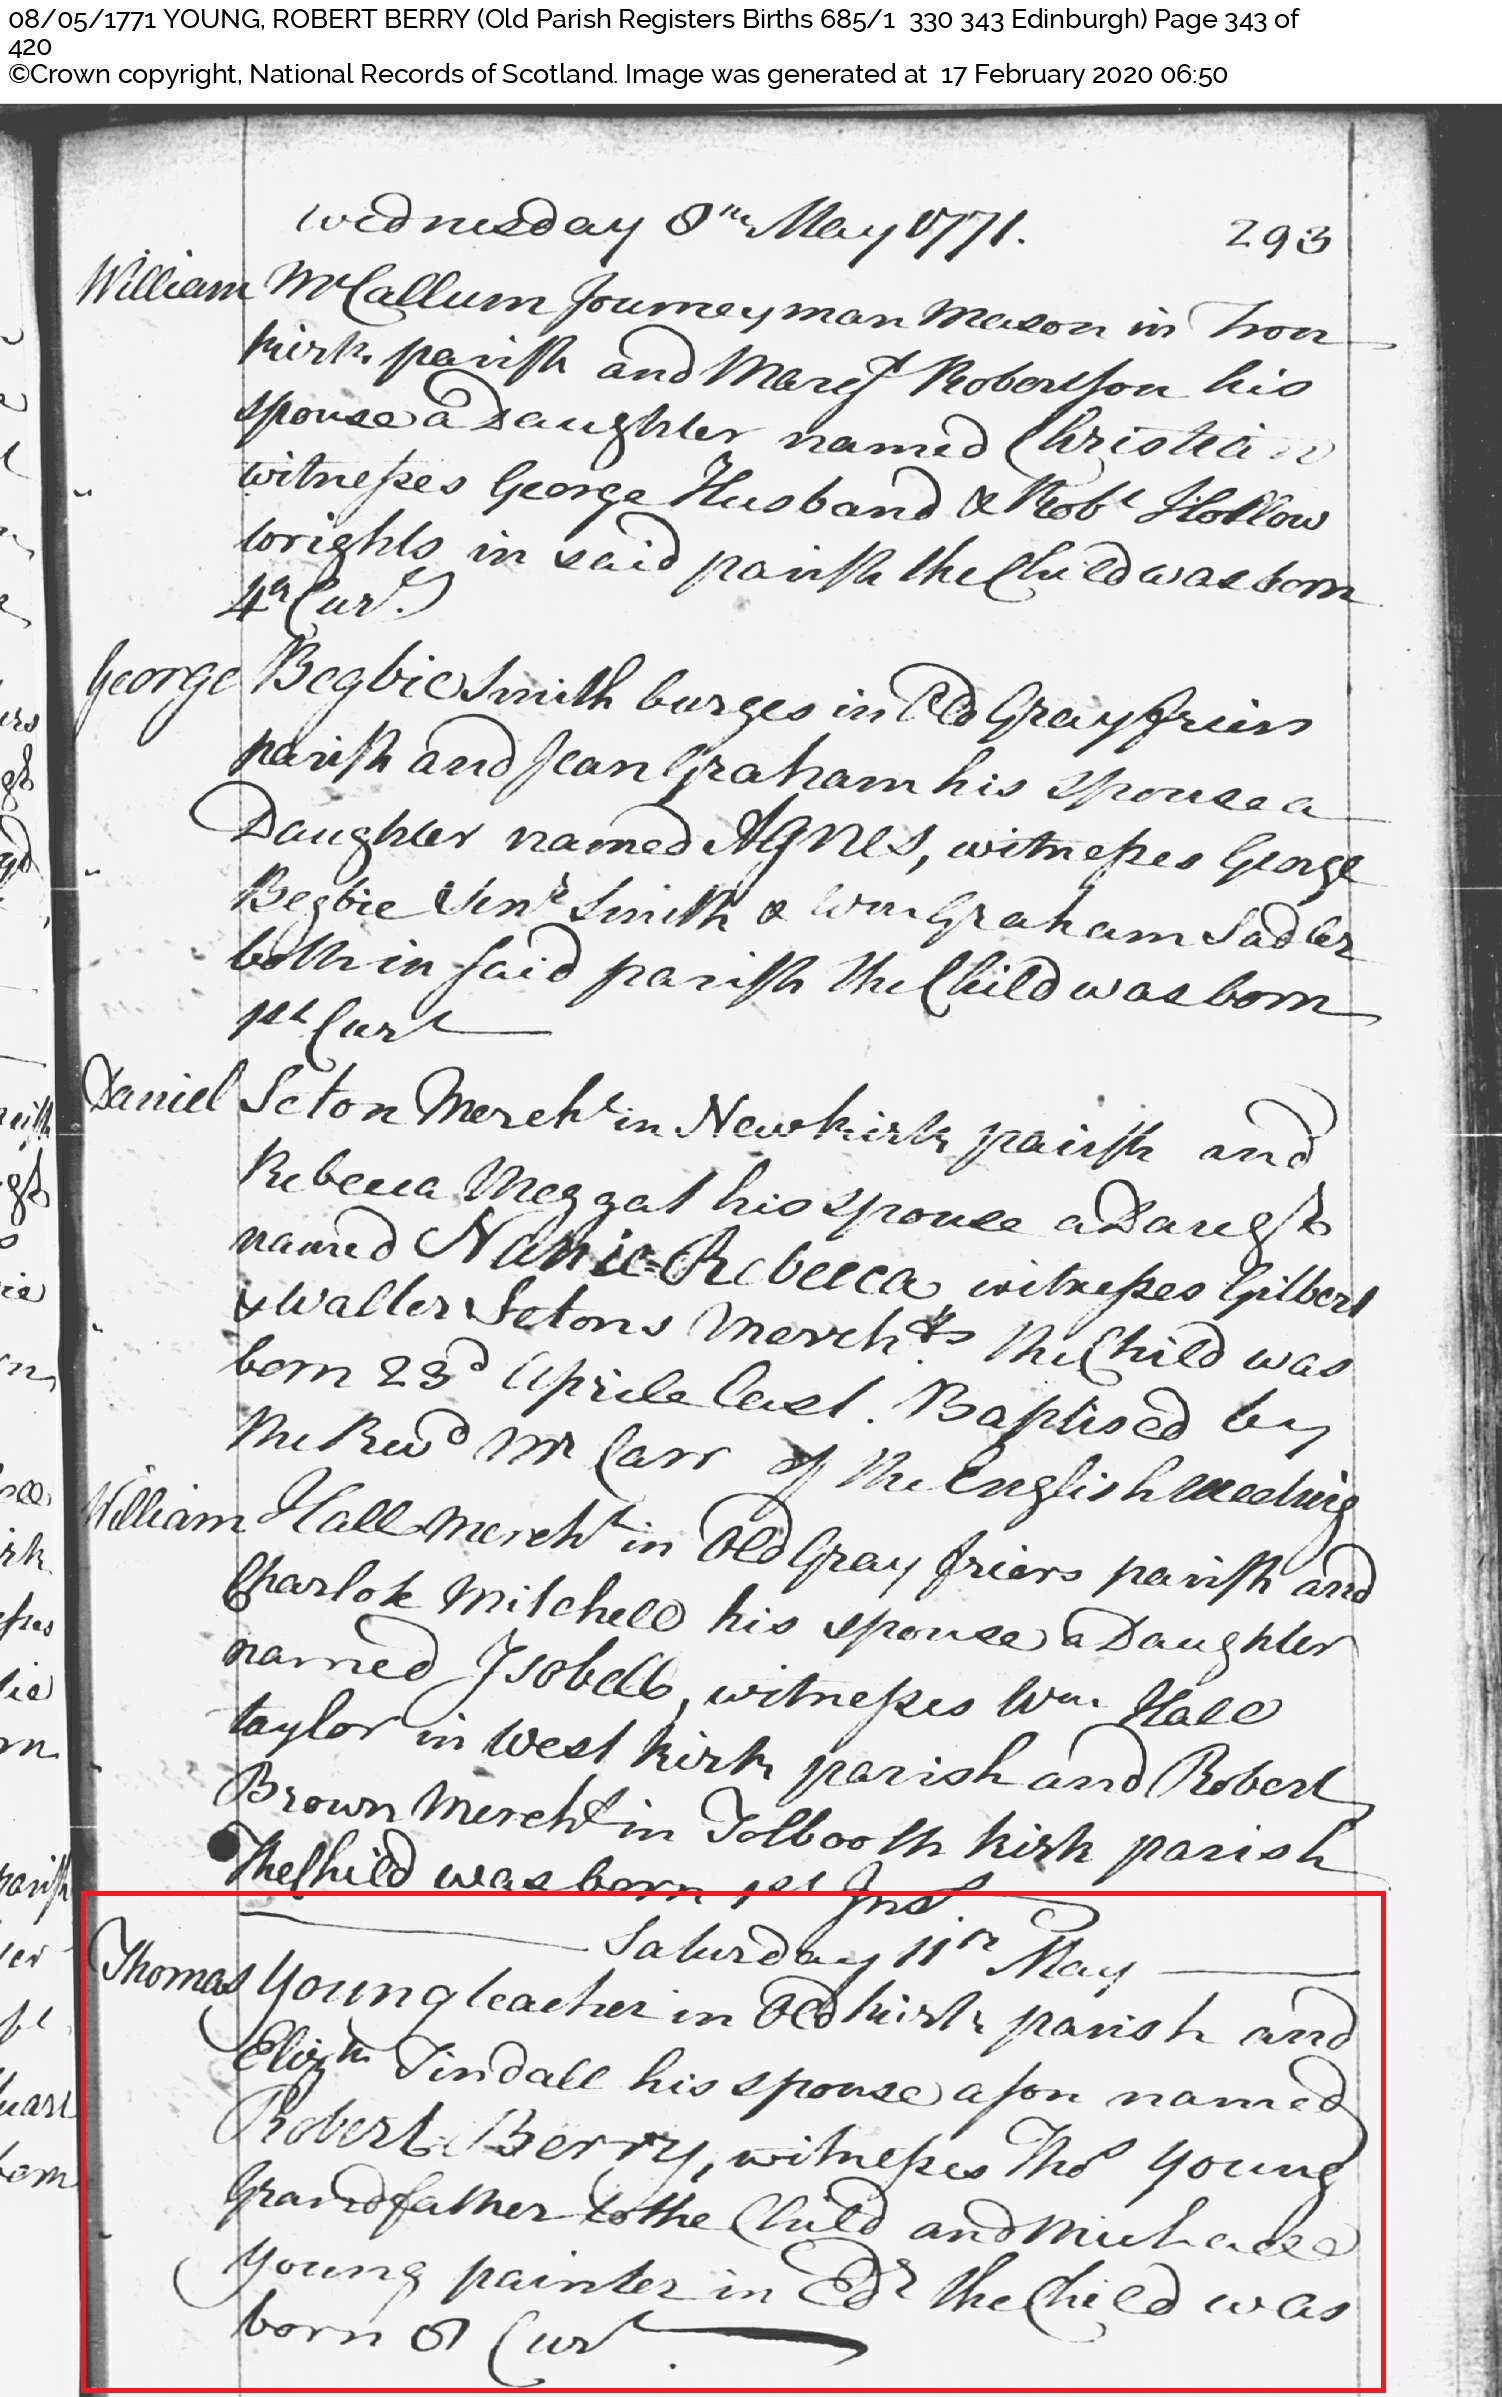 08/05/1771 YOUNG, ROBERT BERRY (Old Parish Registers Births 685/1 330 343 Edinburgh) Page 343 of
420
©Crown copyright, National Records of Scotland. Image was generated at 17 February 2020 06:50
Wednesday 8th May 1771. 293
William McCallum Journeyman Mason in Tron
kirk parish and Margt Robertson his
spouse a Daughter named Christian
witnesses George Husband & Robt Hollow
wrights in said parish the Child was born
4th Curt.
George Begbie Smith burges in Old Grayfriers
parish and Jean Graham his spouse a
Daughter named Agnes, witnesses George
Begbie Senr Smith & Wm Graham Sadler
both in said parish the Child was born
1st Curt
Daniel Seton Mercht in Newkirk parish and
Rebecca Meggat his spouse a Daugh
named Rebecca witnesses Gilbert
& Walter Setons Merchts. The Child was
born 23d Aprile last. Baptised by
the Revd Mr Carr of the English meeting
William Hall mercht in Old Gray friers parish and
Charlote Mitchell his spouse a Daughter
named Isobell, witnesses Wm Hall
taylor in West kirk parish and Robert
Brown Mercht in Tolbooth kirk parish
The Child was born 1st Inst.
Saturday 11th May
Thomas Young teacher in Old kirk parish and
Elizth Tindall his spouse a son named
Robert Berry, witnesses Thos Young
Grandfather to the Child and Michael
Young painter in Edr the Child was
born 8 Curt.